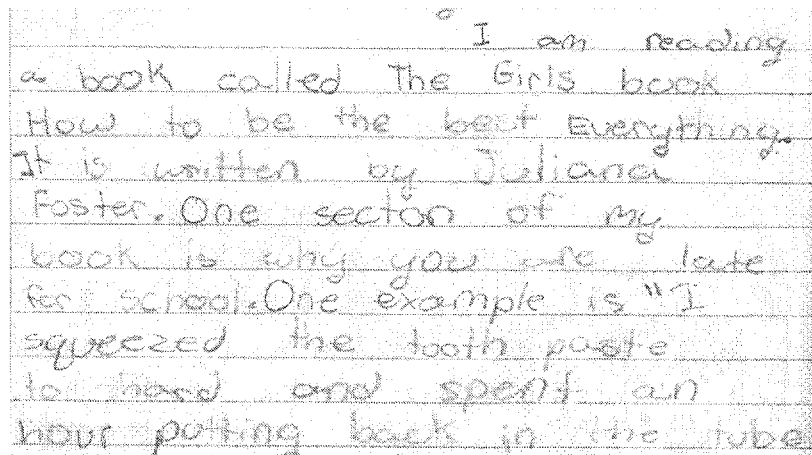 I am reading
a book called The Girls book
How to be the best Everything.
It is written by Juliana
Foster. One secton of my
book is why you are late
for school. One example is "I
squeezed the tooth paste
to hard and spent an
hour putting back in the tube